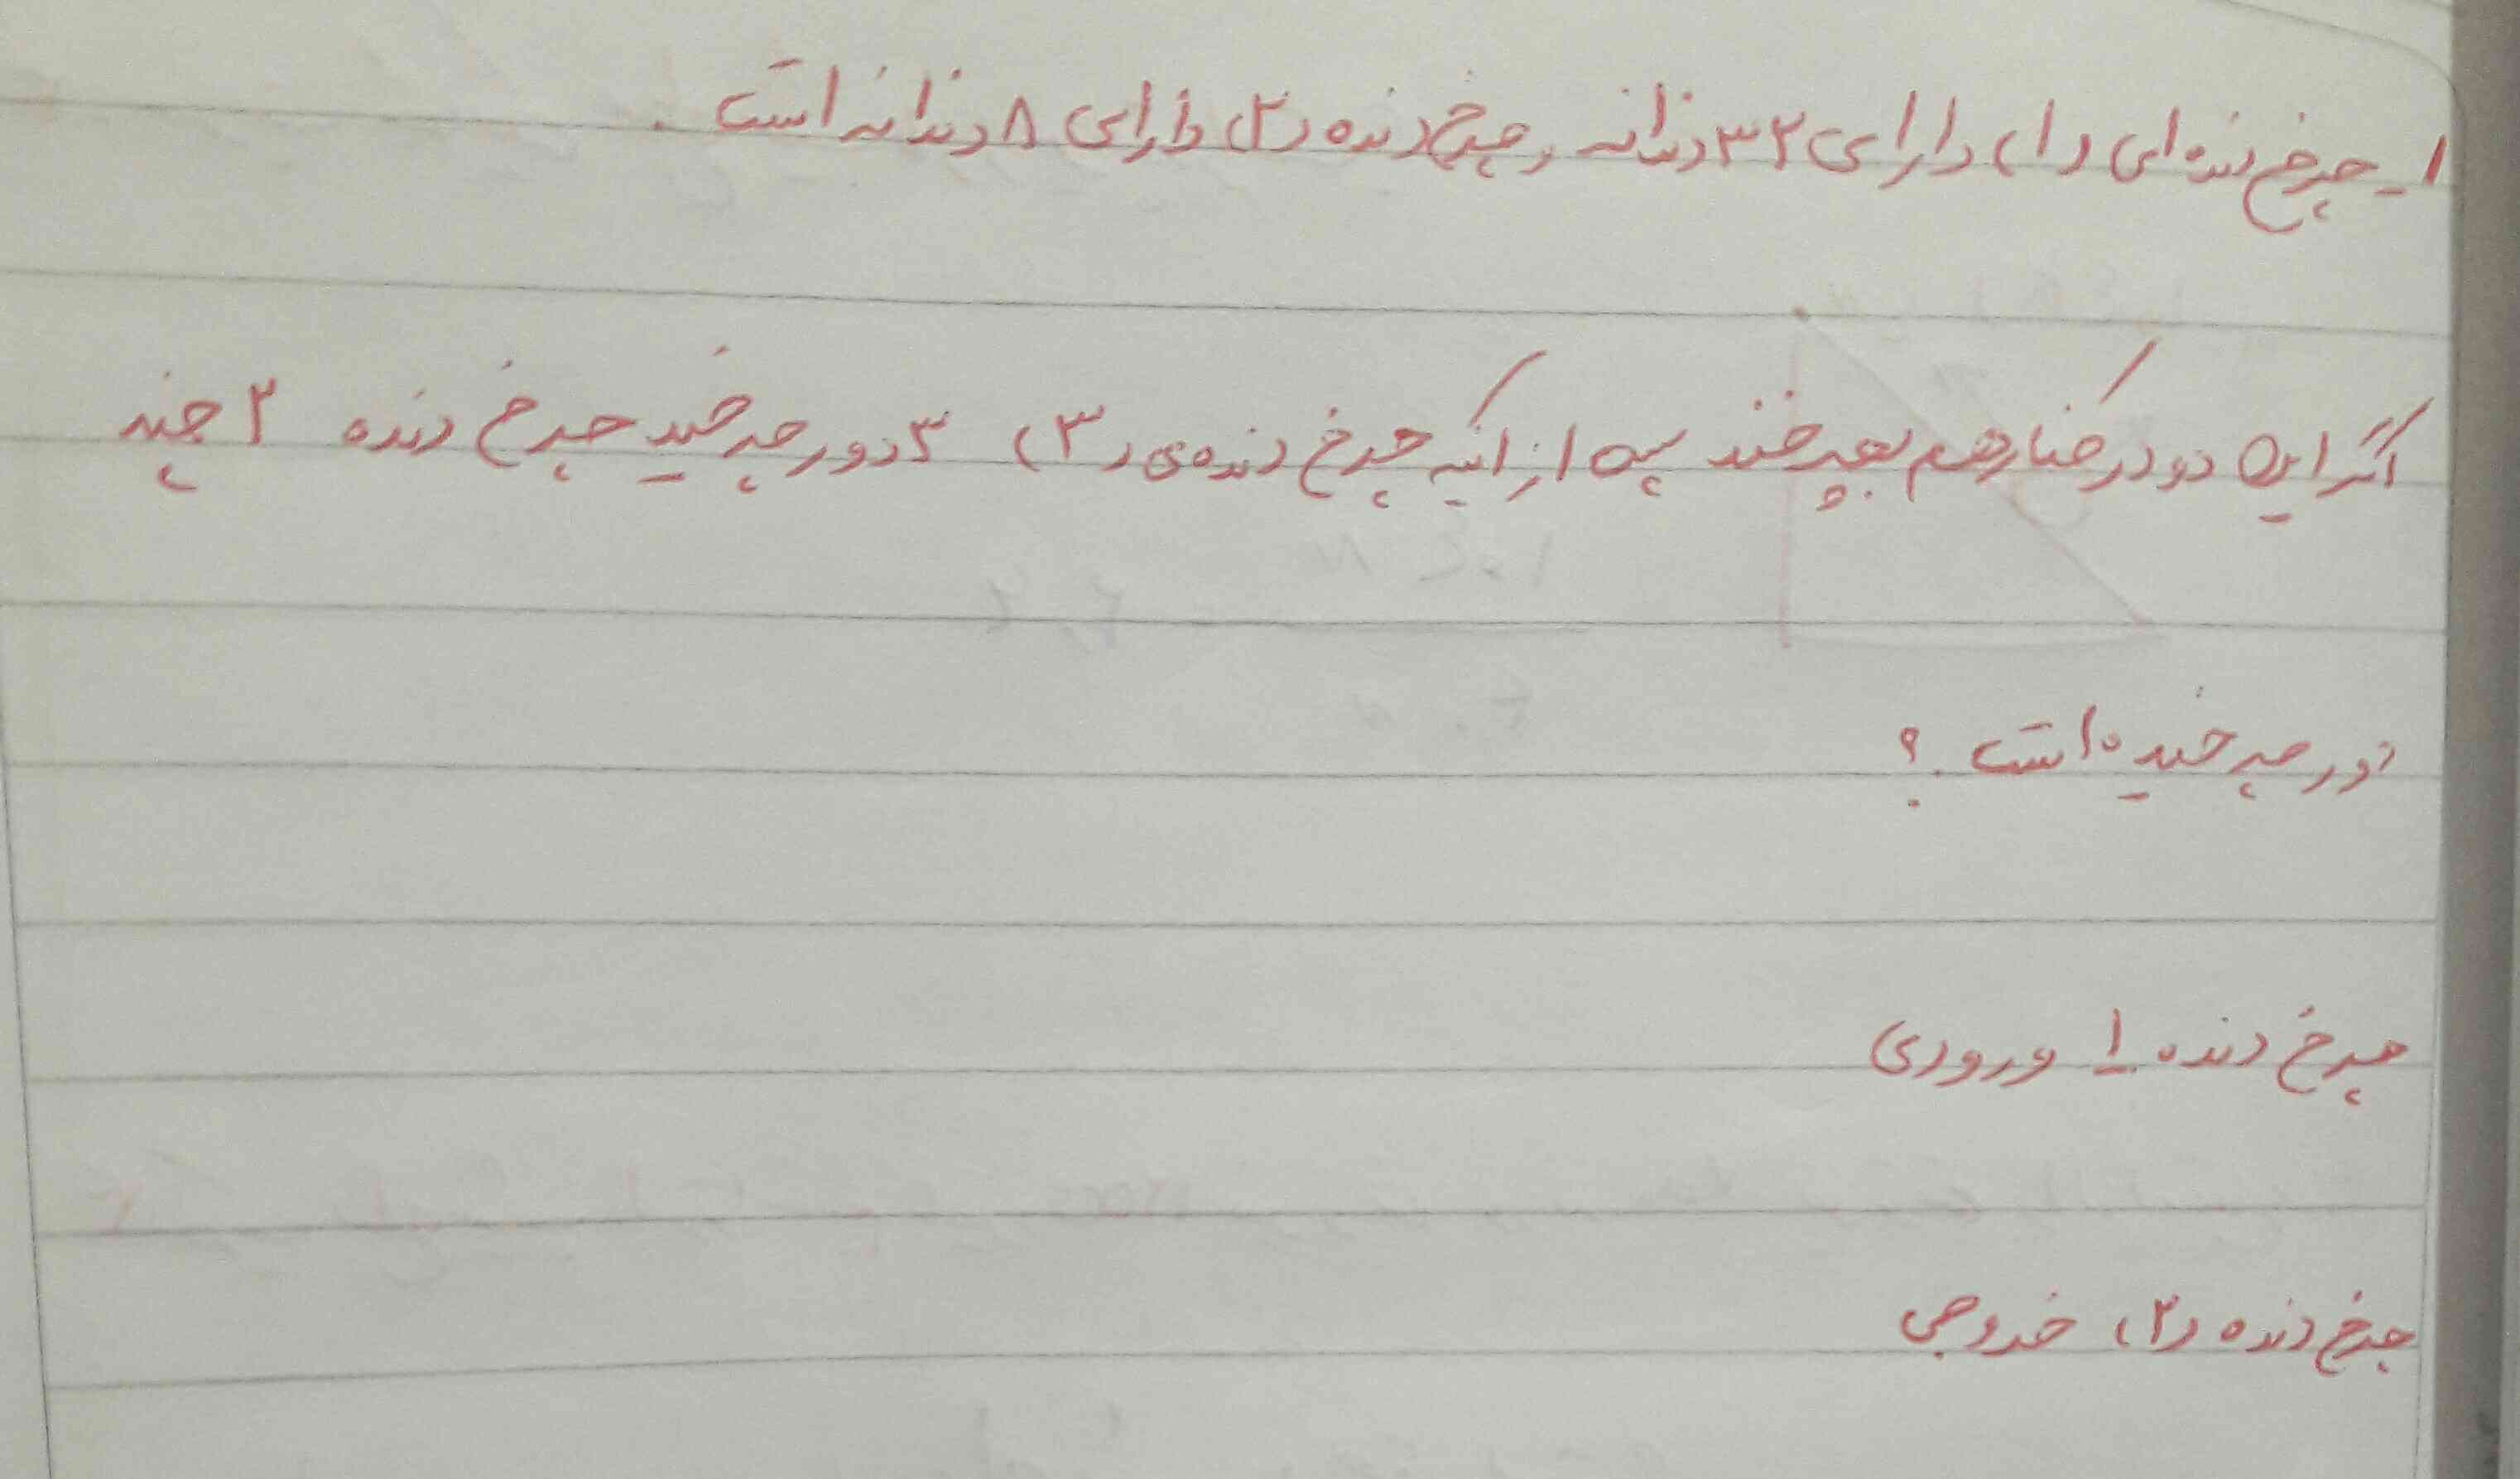 ۱- چرخ دنده ای (۱) دارای ۳۲ دندانه و چرخ دنده (۲) دارای ۸ دندانه است .
اگر این دو در کنار هم بچرخند پس از اینکه چرخ دنده ی (۳) ۳ دور چرخید چرخ دنده ۲ چند
دور چرخیده است ؟
چرخ دنده ۱ ورودی
چرخ دنده (۲) خروجی